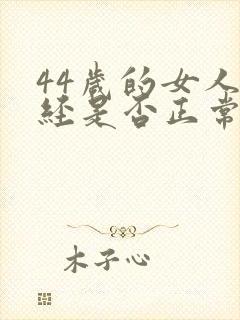 44歲的女人
經是否正常
木子心